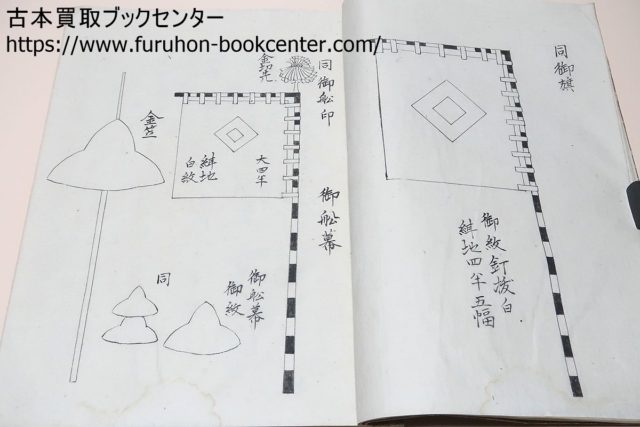 古本買取ブックセンター
https://www.furuhon-bookcenter.com/
同御旗
御紋釘抜白
絳地四半五幅
同御舩印
御舩幕
大四半
絳地
白紋
金笠
御舩幕
御紋
同